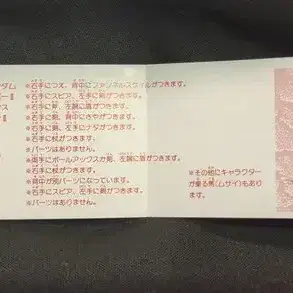 ダム
※右手につえ、背中にファンネルスタイルがつきます。
※右手にスピア、左手に剣がつきます。
※右手に斧、左腕に盾がつきます。
※右手に剣、背中にさやがつきます。
※右手に剣、左手にナタがつきます。
※右手に杖がつきます。
※パーツはありません。
※両手にボールアックスか剣、左腕に盾がつきます。
※右手に杖がつきます。
※背中が別パーツになっています。
※右手にスピア、左手に
がつきます。
※パーツはありません。
※その他にキャラクター
が乗る馬(ムサイ)もあり
ます。